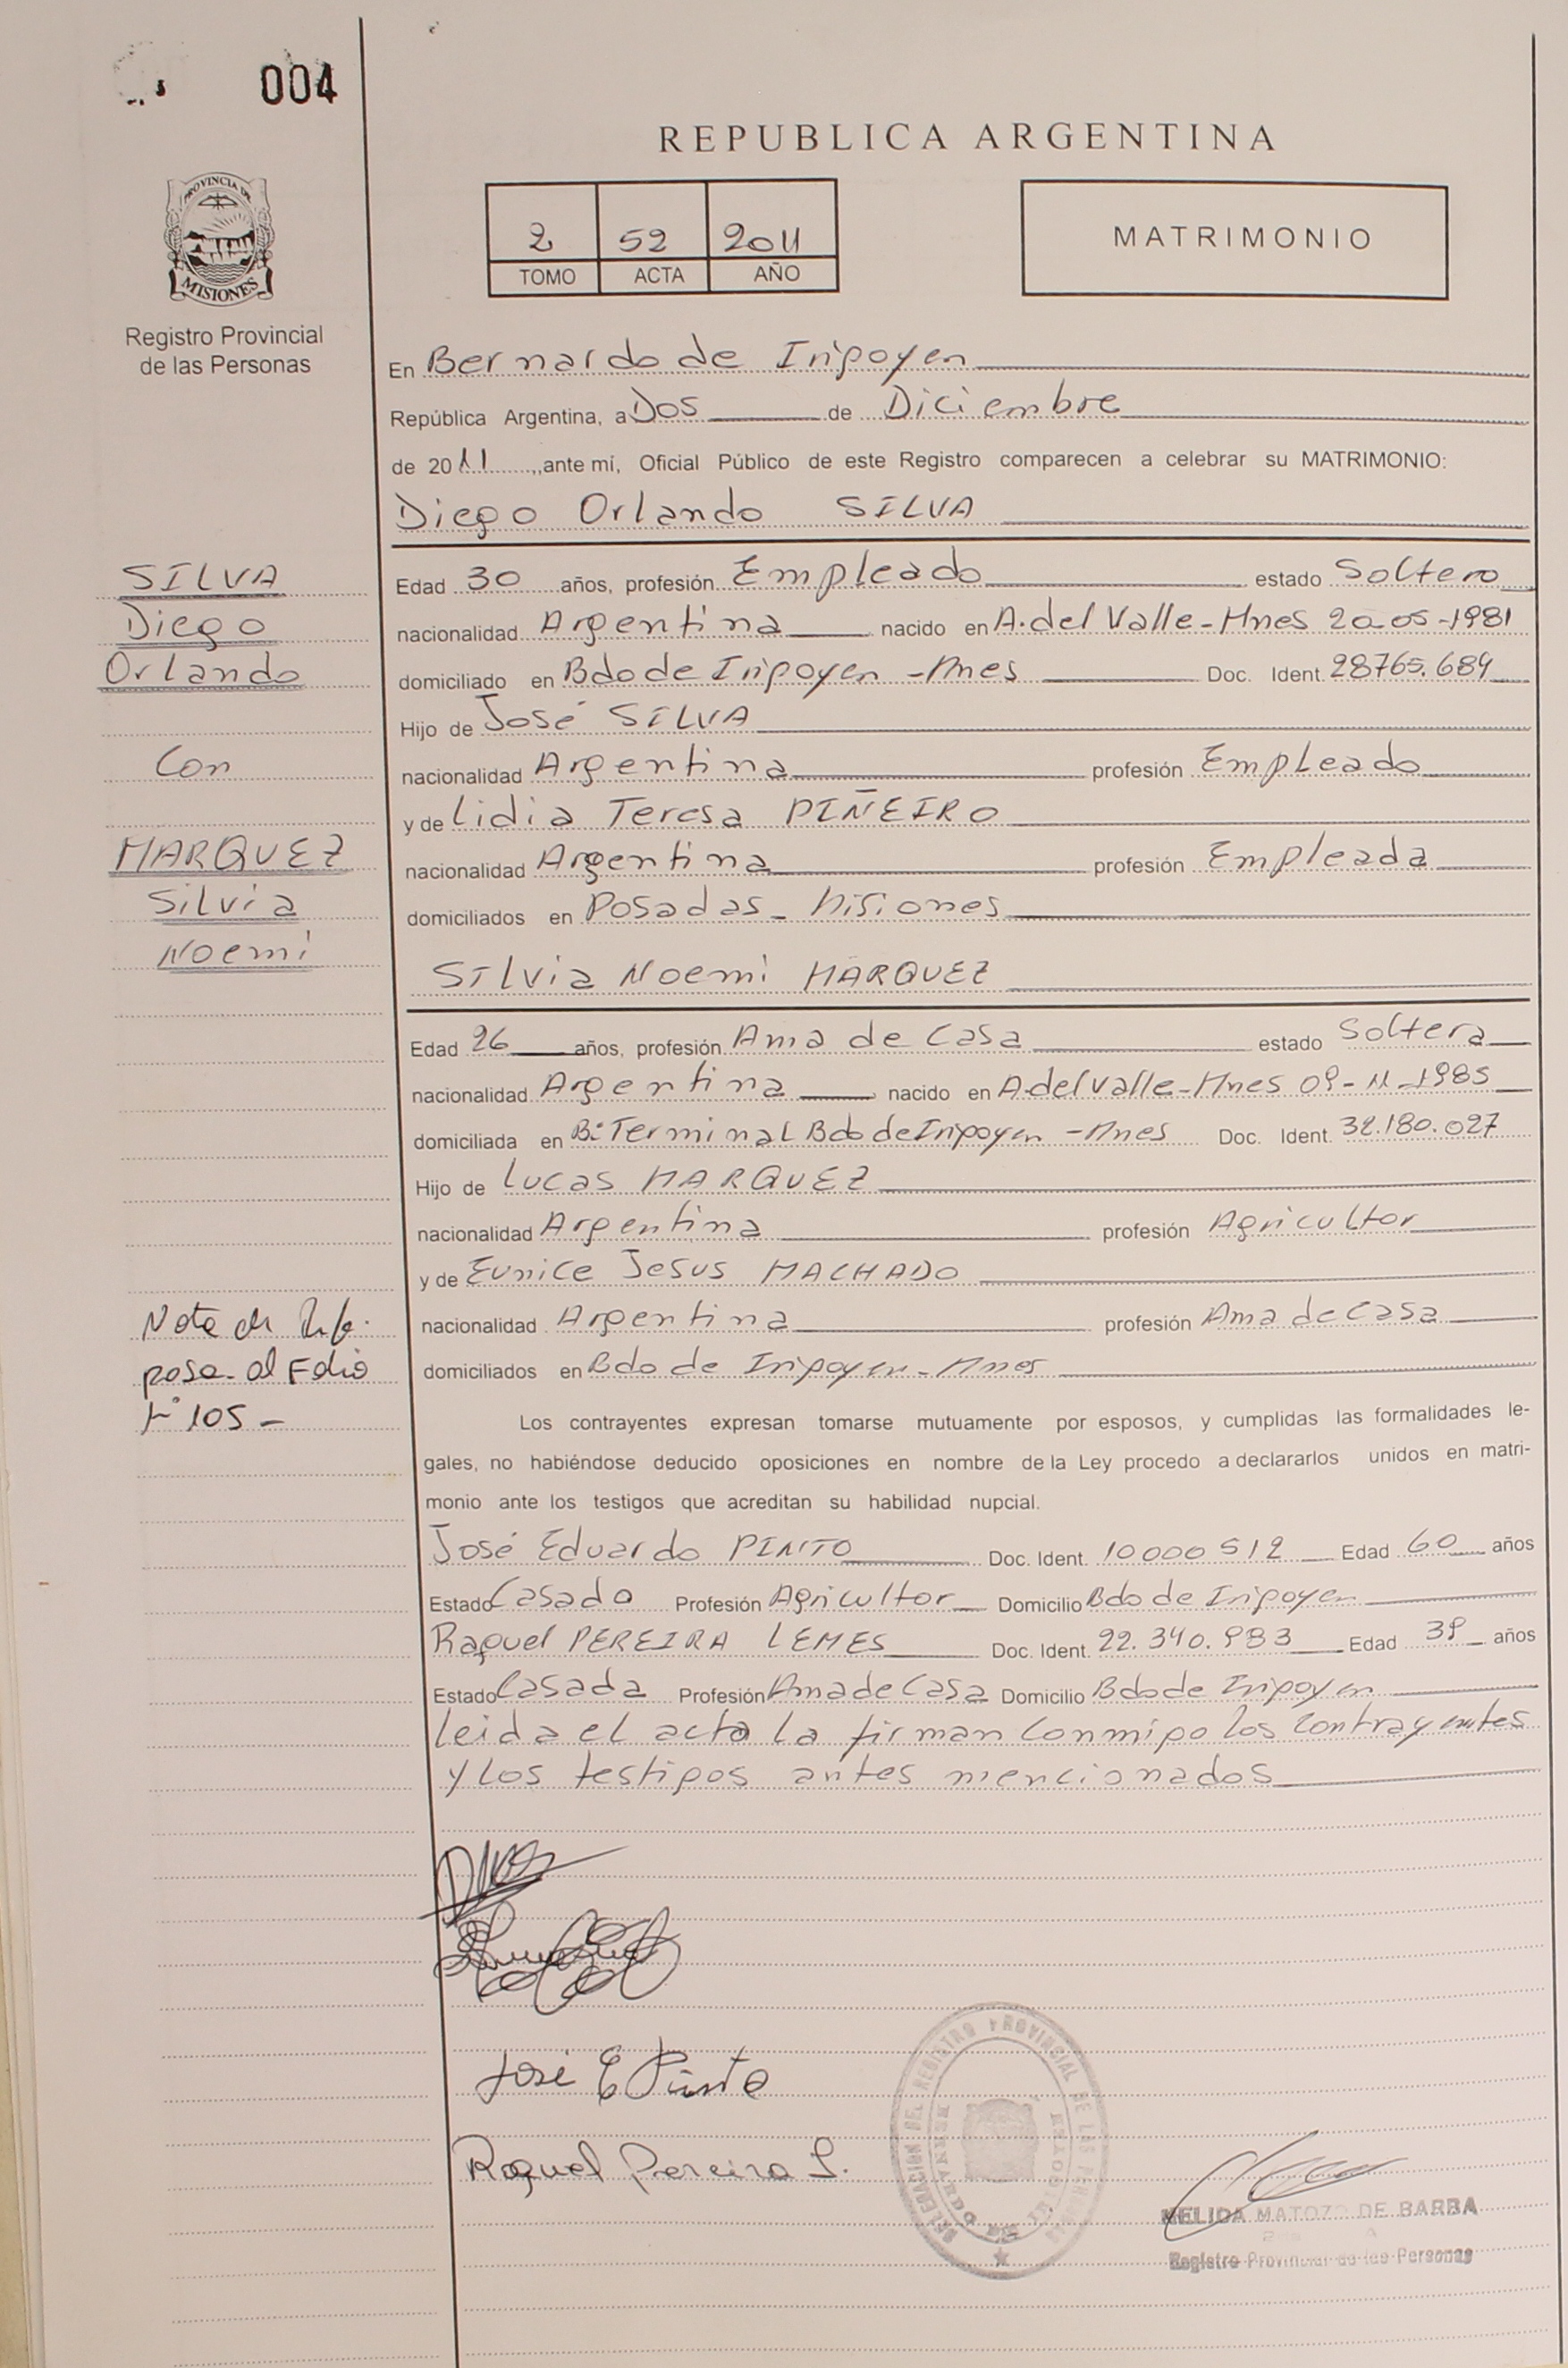 004
REPUBLICA ARGENTINA
PROVINCIA DE
MISIONES
Registro Provincial
de las Personas
2 52 2011
TOMO ACTA AÑO
MATRIMONIO
En Bernardo de Irigoyen
República Argentina, a Dos de Diciembre
de 2011, ante mí, Oficial Público de este Registro comparecen a celebrar su MATRIMONIO:
Diego Orlando SILVA
SILVA
Diego
Orlando
Con
MARQUEZ
Silvia
Noemi
Edad 30 años, profesión Empleado estado Soltero
nacionalidad Argentina nacido en A. del Valle - Mnes 20-05-1981
domiciliado en Bdo de Irigoyen - Mnes Doc. Ident. 28765.684
Hijo de José SILVA
nacionalidad Argentina profesión Empleado
y de Lidia Teresa PIÑEIRO
nacionalidad Argentina profesión Empleada
domiciliados en Posadas - Misiones
Silvia Noemi MARQUEZ
Edad 26 años, profesión Ama de Casa estado Soltera
nacionalidad Argentina nacido en A. del Valle - Mnes 09-11-1985
domiciliada en B° Terminal Bdo de Irigoyen - Mnes Doc. Ident. 32.180.027
Hijo de Lucas MARQUEZ
nacionalidad Argentina profesión Agricultor
y de Eunice Jesus MACHADO
nacionalidad Argentina profesión Ama de Casa
domiciliados en Bdo de Irigoyen - Mnes
Nota de
pasa al Folio
N° 105 -
Los contrayentes expresan tomarse mutuamente por esposos, y cumplidas las formalidades le-
gales, no habiéndose deducido oposiciones en nombre de la Ley procedo a declararlos unidos en matri-
monio ante los testigos que acreditan su habilidad nupcial.
José Eduardo PINTO Doc. Ident. 10000512 Edad 60 años
Estado Casado Profesión Agricultor Domicilio Bdo de Irigoyen
Raquel PEREIRA LEMES Doc. Ident. 22.340.983 Edad 39 años
Estado Casada Profesión Ama de Casa Domicilio Bdo de Irigoyen
leida el acta la firman conmigo los contrayentes
y los testigos antes mencionados
José E Pinto
Raquel Pereira L.
DELEGACION DEL REGISTRO PROVINCIAL DE LAS PERSONAS
NELIDA MATOZO DE BARBA
Registro Provincial de las Personas